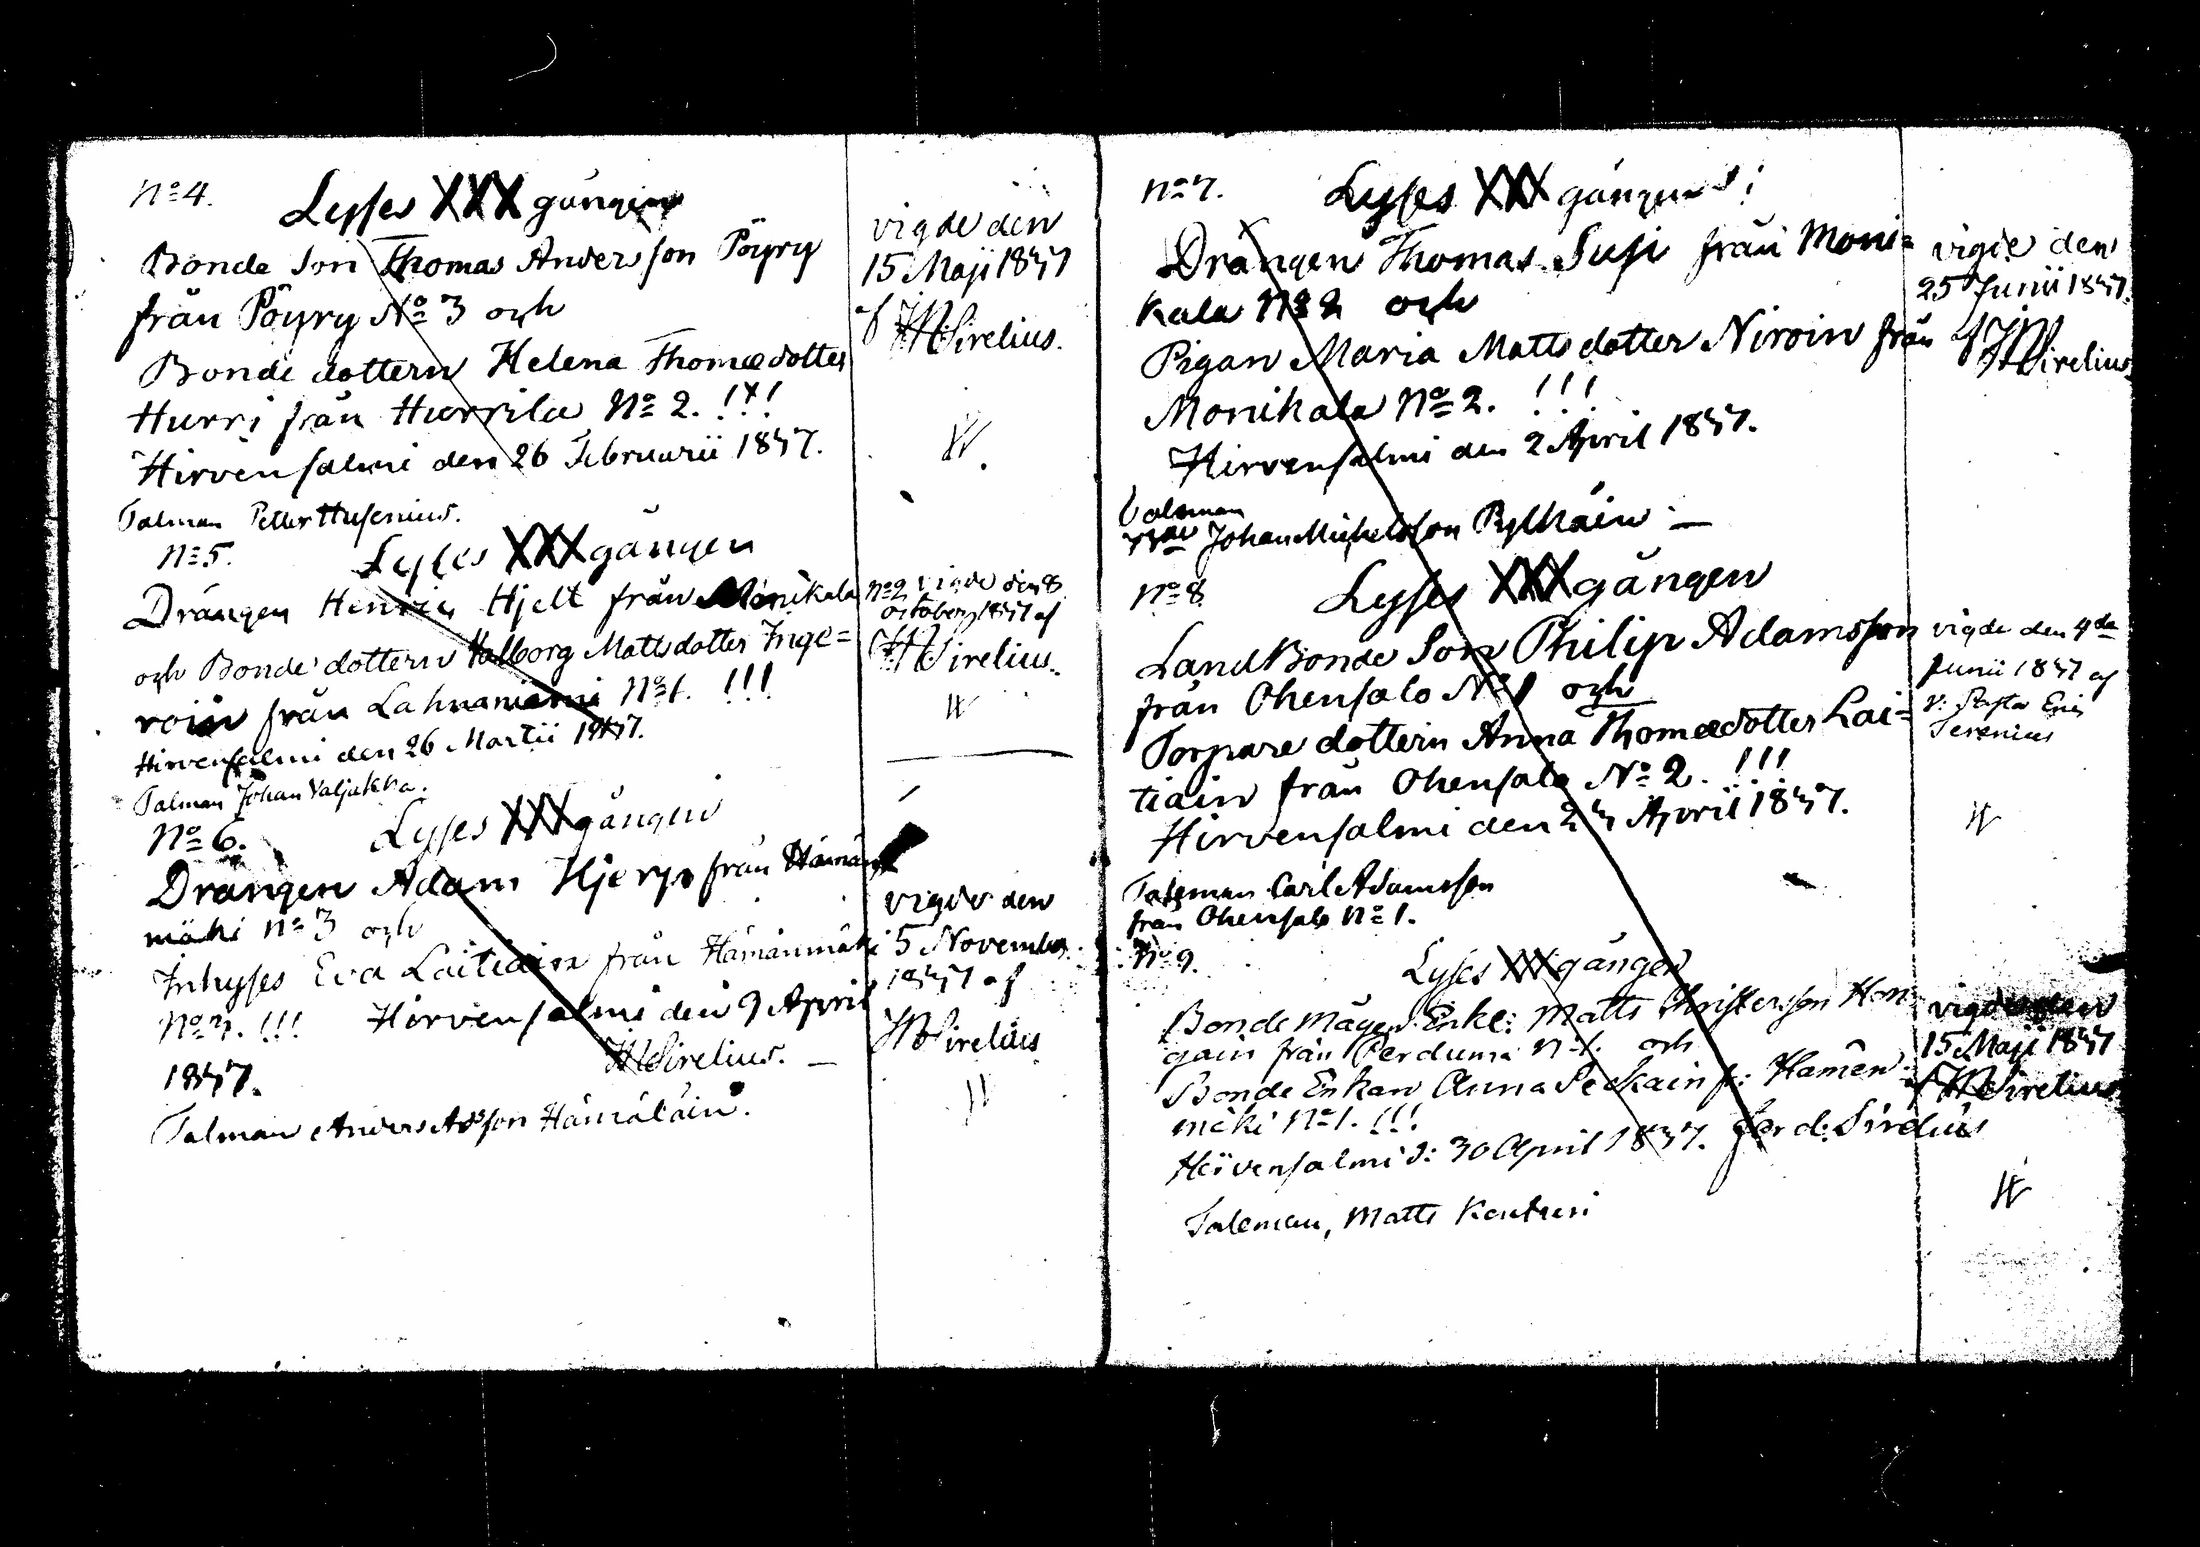 No 4.
Lysses XXX gången
Bonde Son Thomas Andersson Pöyry
från Pöyry No 3 och
Bonde dottern Helena Thomædotter
Hurri från Hurrila No 2. !!!
Hirvensalmi den 26 Februarii 1847.
Talman Petter Husenius.
vigde den
15 Maji 1847
af HSirelius.
No 5.
Lyses XXX gången
Drängen Henric Hjelt från Monikala
och Bonde dottern Valborg Mattsdotter Inge=
roin från Lahnaniemi No 1. !!!
Hirvensalmi den 26 Martii 1847.
Talman Johan Valjakka.
No 2 vigde den 8
october 1847 af
HSirelius.
No 6.
Lyses XXX gången
Drängen Adam Hjerp från Hämän
mäki No 3 och
Inhyses Eva Laitiain från Hämänmäki
No 7. !!! Hirvensalmi den 9 April
1847. HSirelius.
Talman Anders Adsson Hämäläin.
vigde den
5 November
1847 af
HSirelius
No 7.
Lyses XXX gången
Drängen Thomas Susi från Moni=
kala No 2 och
Pigan Maria Mattsdotter Niroin från
Monikala No 2. !!!
Hirvensalmi den 2 April 1847.
Talsman
Johan Michelsson Pylkäin
vigde den
25 Junii 1847
af HSirelius
No 8
Lyses XXX gången
LandBonde Son Philip Adamsson
från Ohensalo No 1 och
Torpare dottern Anna Thomædotter Lai=
tiain från Ohensalo No 2. !!!
Hirvensalmi den 24 April 1847.
Talsman Carl Adamsson
från Ohensalo No 1.
vigde den 4de
Junii 1847 af
v: Pastor Eric
Serenius
No 9.
Lyses XXX gången
Bonde mågen Enkl: Matts Christersson Hon
gain från Perdumä No 1. och
Bonde Enkan Anna Peckain fr: Hamen
mäki No 1. !!!
Hirvensalmi d: 30 April 1847. Ferd: Sirelius
Taleman, Matts Konturi
vigde den
15 Maji 1847
af HSirelius